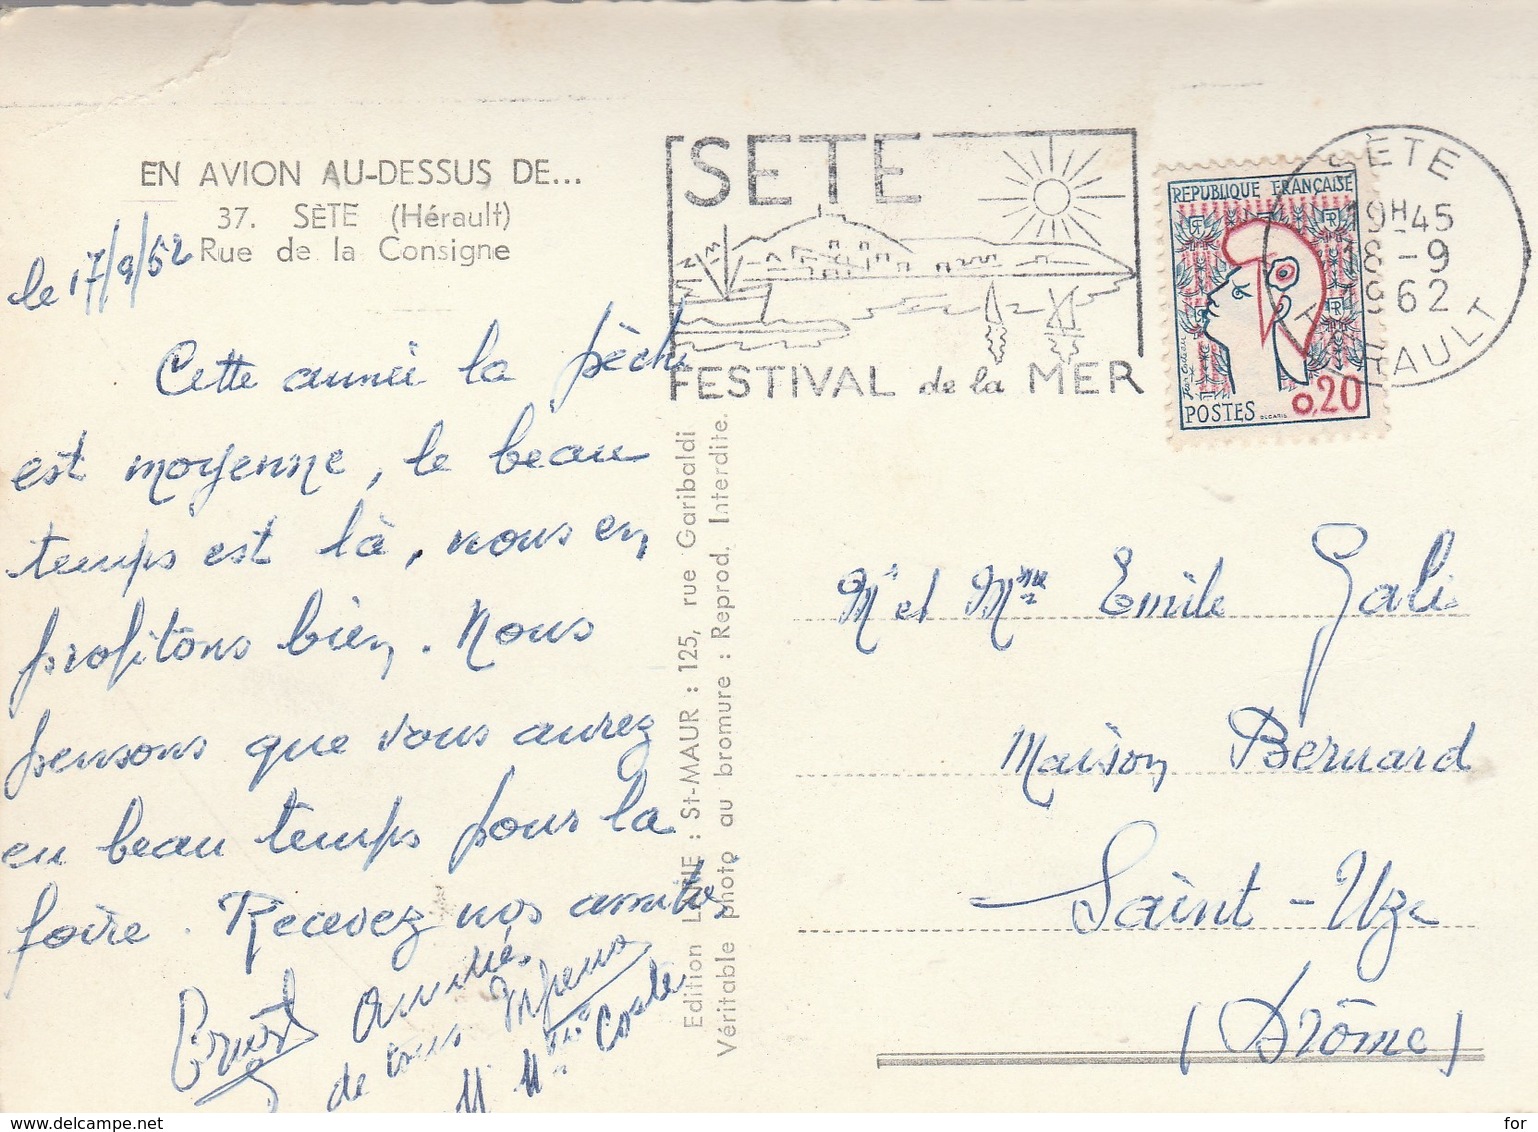 EN AVION AU-DESSUS DE...
37. SÈTE (Hérault)
Rue de la Consigne
le 17/9/62
Cette année la pêche
est moyenne, le beau
temps est là, nous en
profitons bien. Nous
pensons que vous aurez
eu beau temps pour la
foire. Recevez nos amitiés
Amitiés
de tous
M Mme Coste
Edition LAPIE : St-MAUR : 125, rue Garibaldi
Véritable photo au bromure : Reprod. Interdite.
SETE
FESTIVAL de la MER
SÈTE
19H45
18-9
1962
HÉRAULT
REPUBLIQUE FRANÇAISE
RF
Jean Cocteau
POSTES
DECARIS
0,20
Mr et Mme Emile Gali
Maison Bernard
Saint-Uze
(Drôme)
www.delcampe.net
for